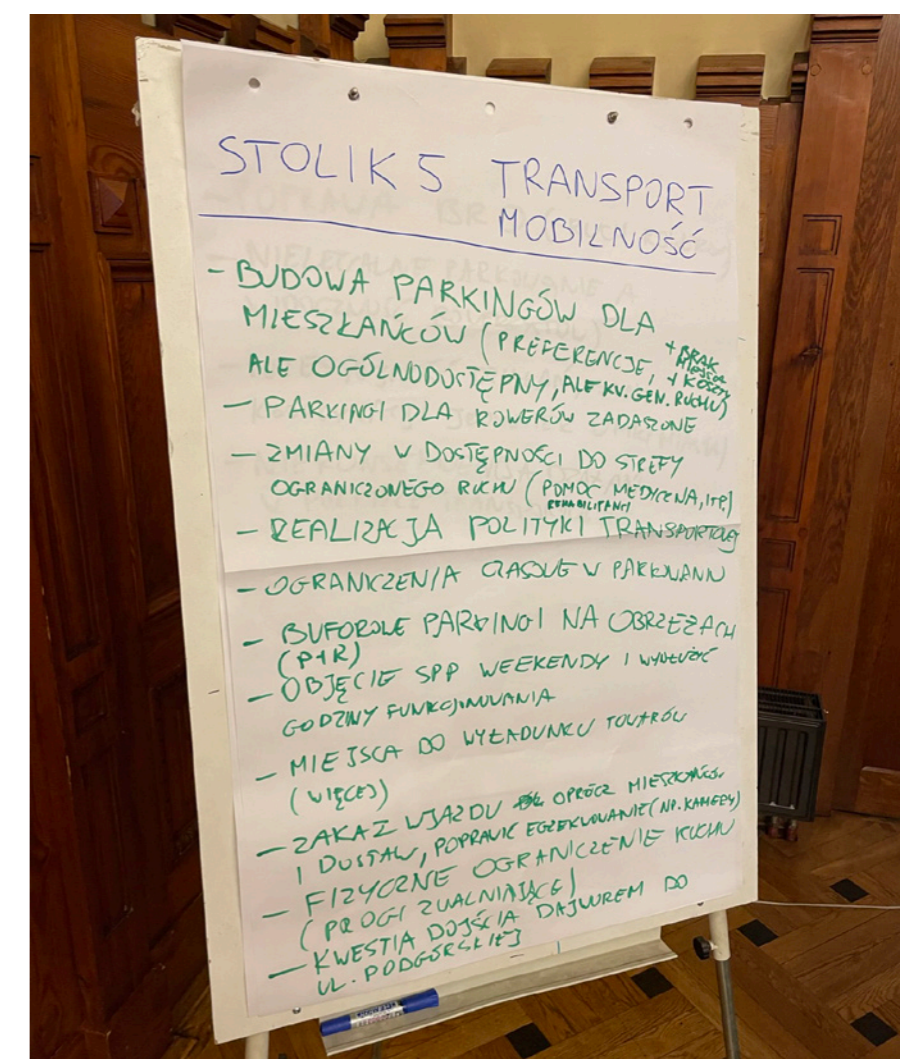 STOLIK 5 TRANSPORT
MOBILNOŚĆ
- BUDOWA PARKINGÓW DLA
MIESZKAŃCÓW (PREFERENCJE, + BRAK MIEJSCA + KOSZTY
ALE OGÓLNODOSTĘPNY, ALE KW. GEN. RUCHU)
- PARKINGI DLA ROWERÓW ZADASZONE
- ZMIANY W DOSTĘPNOŚCI DO STREFY
OGRANICZONEGO RUCHU (POMOC MEDYCZNA, ITP.)
REHABILITANCI
- REALIZACJA POLITYKI TRANSPORTOWEJ
- OGRANICZENIA CZASOWE W PARKOWANIU
- BUFOROWE PARKINGI NA OBRZEŻACH
(P+R)
- OBJĘCIE SPP WEEKENDY I WYDŁUŻYĆ
GODZINY FUNKCJONOWANIA
- MIEJSCA DO WYŁADUNKU TOWARÓW
(WIĘCEJ)
- ZAKAZ WJAZDU OPRÓCZ MIESZKAŃCÓW
I DOSTAW, POPRAWIĆ EGZEKWOWANIE (NP. KAMERY)
- FIZYCZNE OGRANICZENIE RUCHU
(PROGI ZWALNIAJĄCE)
- KWESTIA DOJŚCIA DAJWOREM DO
UL. PODGÓRSKIEJ